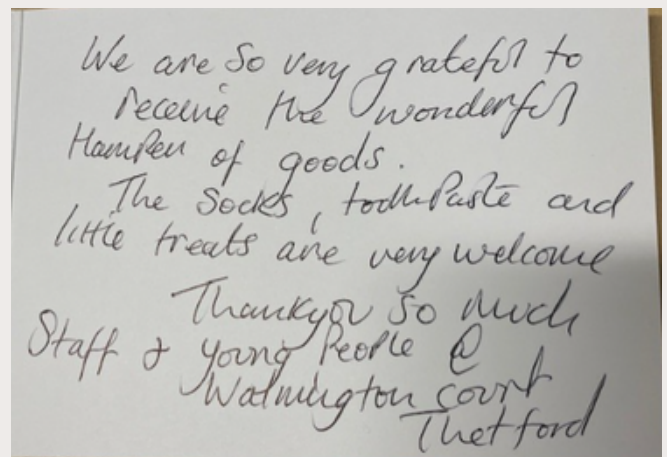 We are so very grateful to
receive the wonderful
Hamper of goods.
The Socks, toothPaste and
little treats are very welcome
Thankyou so much
Staff & young People @
Walmington court
Thetford